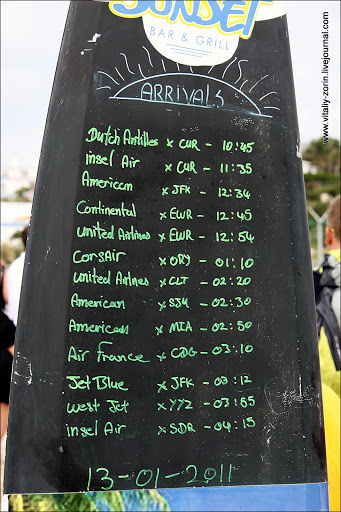 SUNSET
BAR & GRILL
ARRIVALS
Dutch Antilles x CUR - 10:45
insel Air x CUR - 11:35
American x JFK - 12:34
Continental x EWR - 12:45
united Airlines x EWR - 12:54
CorsAir x ORY - 01:10
united Airlnes x CLT - 02:20
American x SJU - 02:30
American x MIA - 02:50
Air France x CDG - 03:10
Jet Blue x JFK - 03:12
west Jet x YYZ - 03:55
insel Air x SDR - 04:15
13-01-2011
www.vitaliy-zorin.livejournal.com